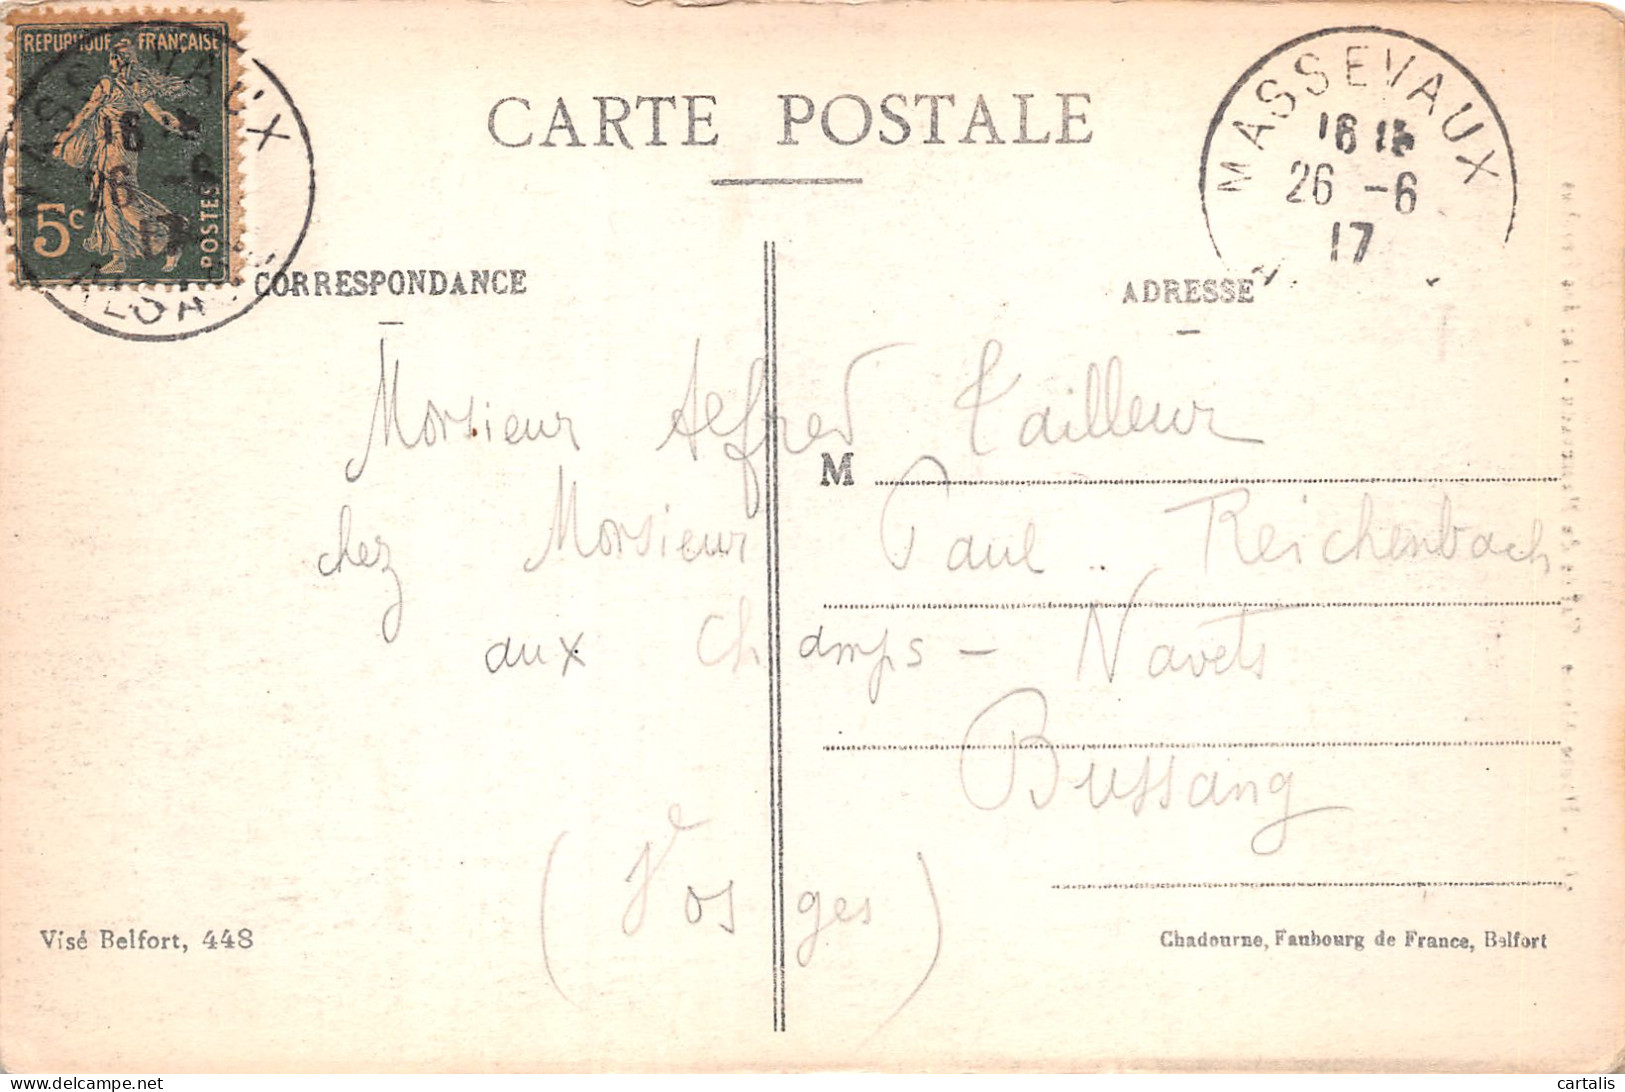 REPUBLIQUE FRANÇAISE
5c
POSTES
MASSEVAUX
16
26 -6
17
CARTE POSTALE
MASSEVAUX
16 15
26 -6
17
CORRESPONDANCE
ADRESSE
Monsieur Alfred Tailleur
M
chez Monsieur Paul Reichenbach
aux Champs - Navets
Bussang
(Vosges)
Visé Belfort, 448
Chadourne, Faubourg de France, Belfort
cartalis